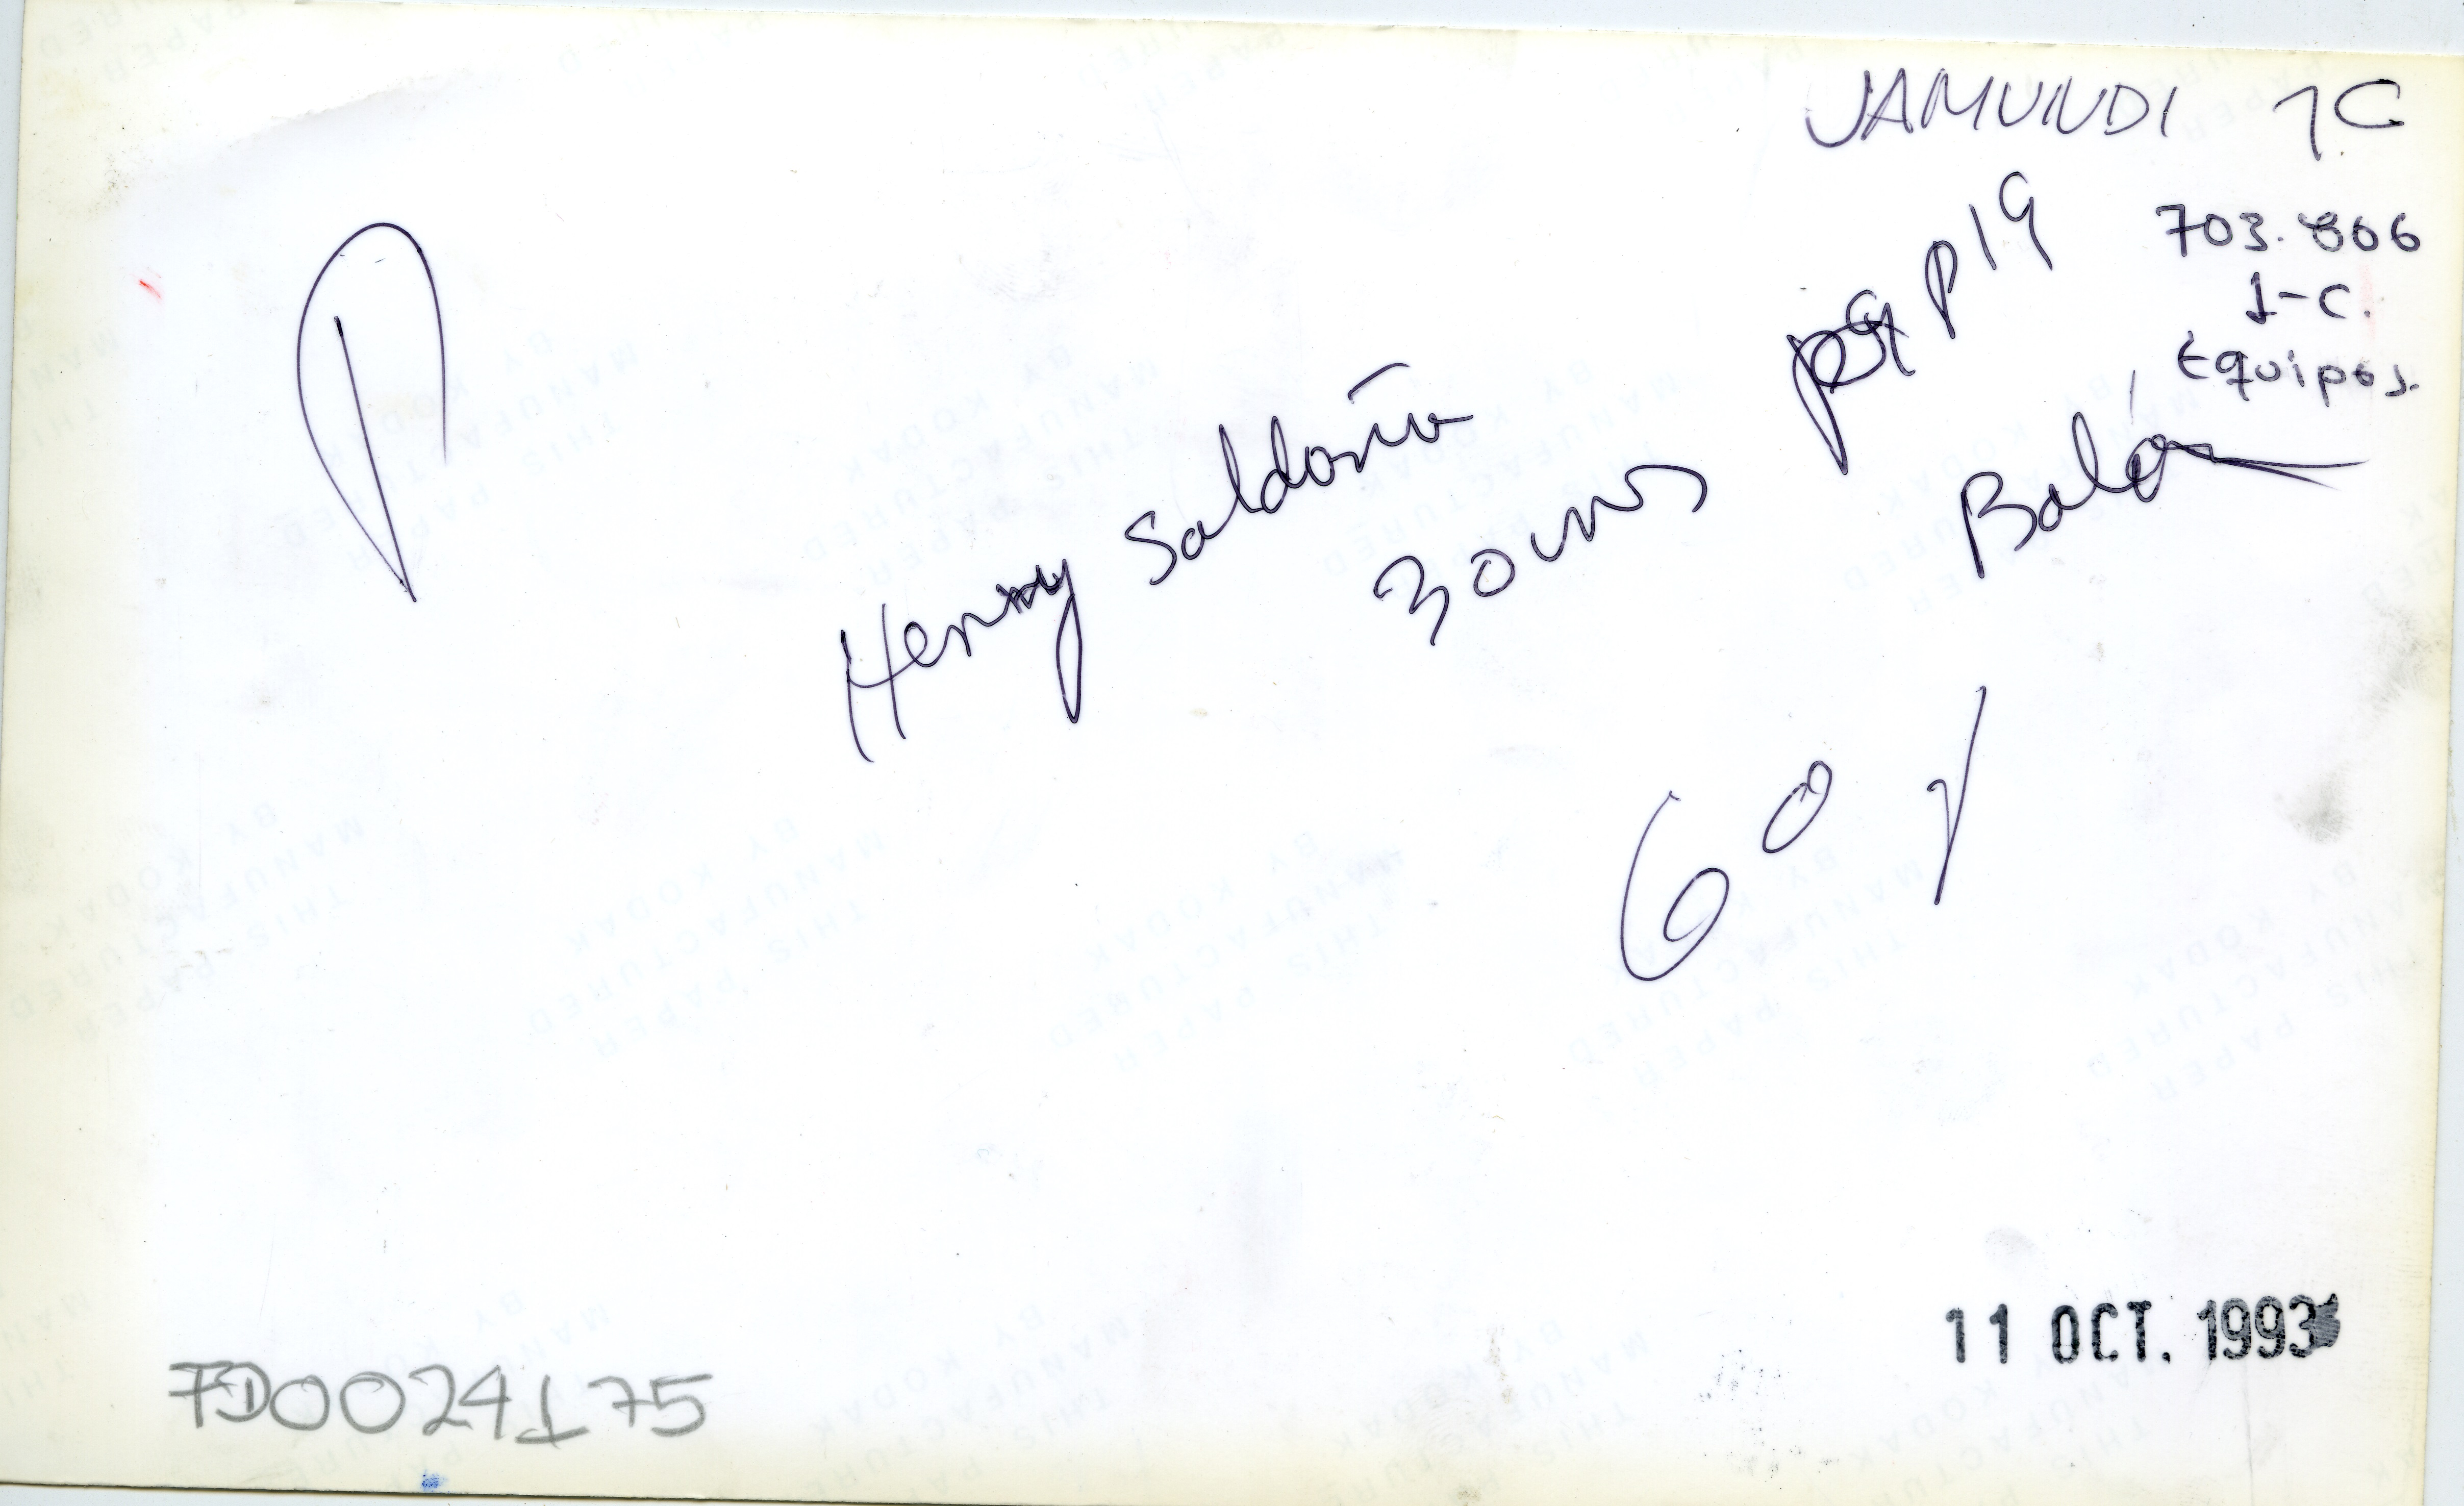 JAMUNDI 1C
703.806
1-C.
Equipos.
Balón
Henry Saldaña
30 cms
60 /
11 OCT. 1993
FD0024175
THIS PAPER
MANUFACTURED
BY KODAK